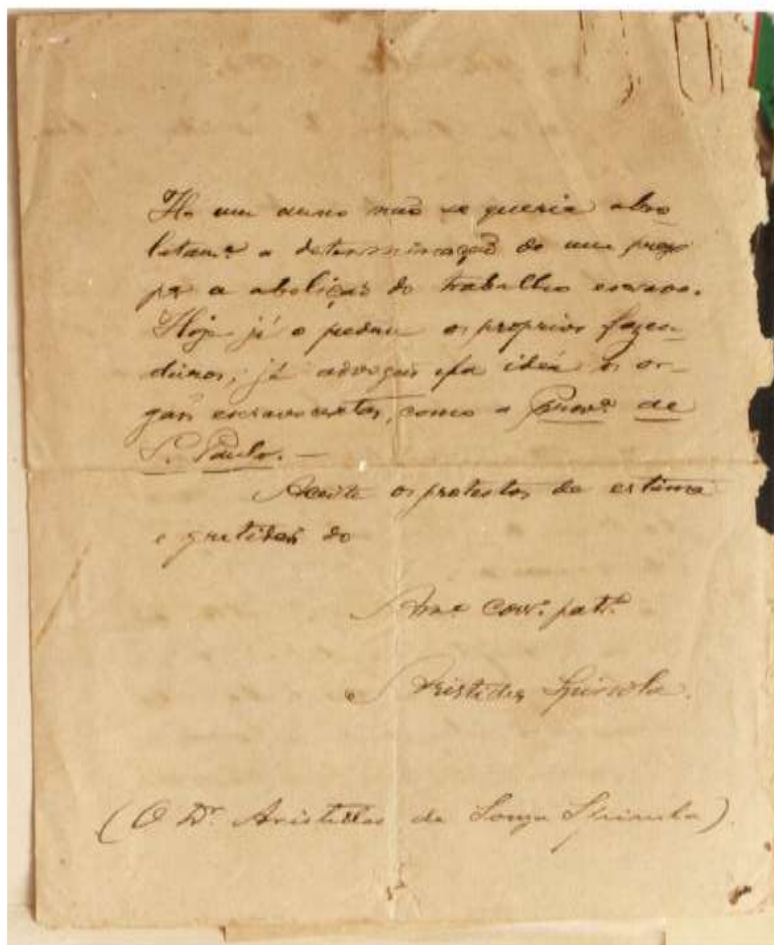 Ha um anno não se queria abso
lutam.e a determinação de um prazo
p.a a abolição do trabalho escravo.
Hoje já o pedem os proprios fazen-
deiros, já advogão essa idéa os or-
gãos escravocratas, como a Prov.a de
S. Paulo. —
Aceite os protestos de estima
e gratidão do
Am.o corr. patr.o
Aristides Spinola.
(O Dr. Aristides de Souza Spinola)